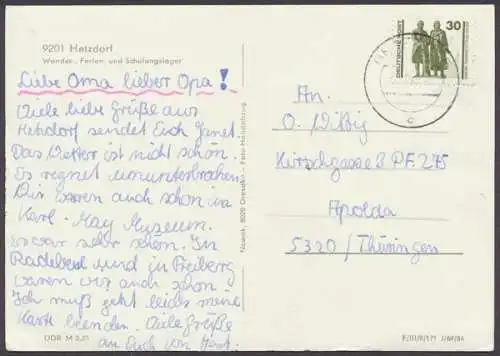 9201 Hetzdorf
Wander-, Ferien- und Schulungslager
Liebe Oma lieber Opa!
Viele liebe Grüße aus
Hetzdorf sendet Euch Janet
Das Wetter ist nicht schön.
Es regnet ununterbrochen
Wir waren auch schon in
Karl-May Muzeum.
es war sehr schön. In
Radebeul und in Freiberg
waren wir auch schon.
Ich muß jetzt leider meine
Karte beenden. Viele Grüße
an Euch von Janet.
DDR M 0,25
Nowak, 8020 Dresden - Foto-Handabzug
DEUTSCHE POST
30
c
An
O. Wittig
Kirschgasse 3 PF 275
Apolda
5320/Thüringen